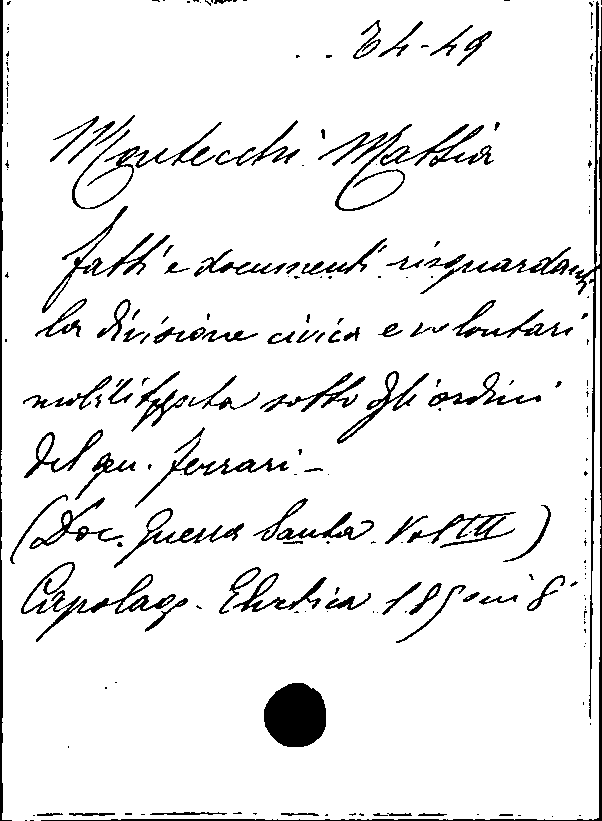 34-49
Montecchi Mattia
fatti e documenti risguardanti
la divisione civica e volontari
mobilitata sotto gli ordini
del gen. Ferrari -
(Doc. Guerra Santa Vol III)
Capolago. Elvetica 1850 in 8°